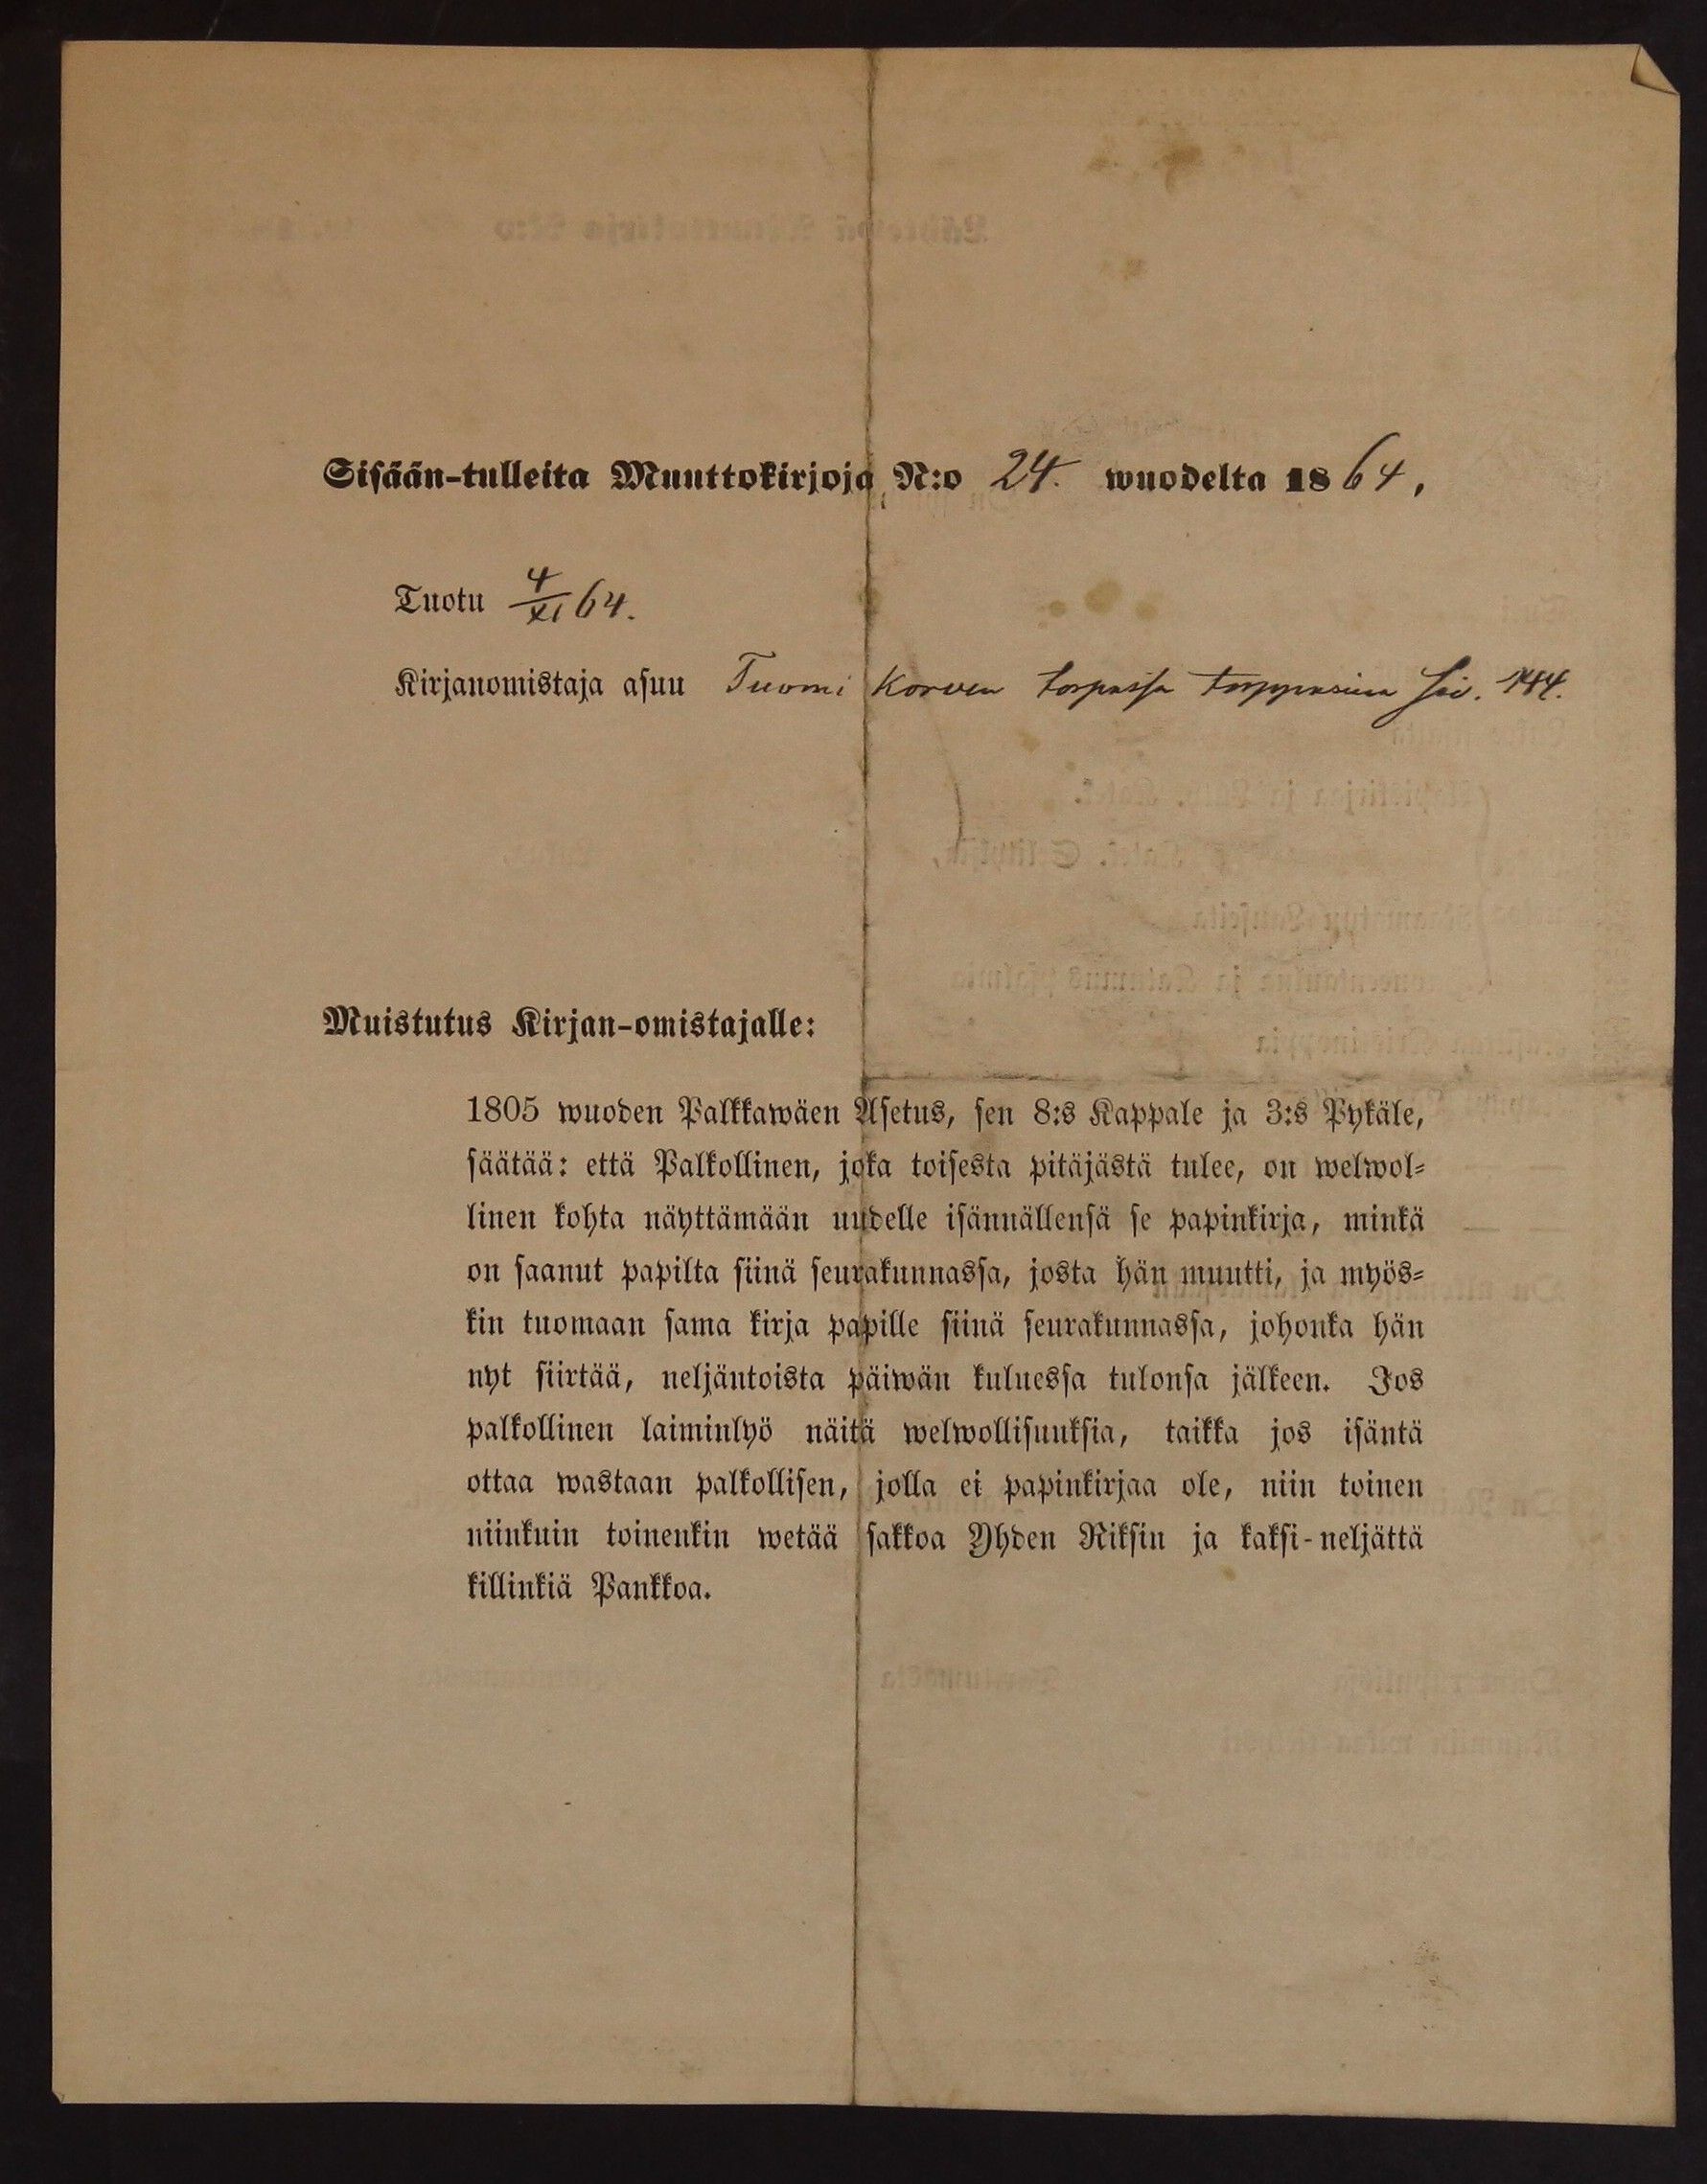 Sisään-tulleita Muuttokirjoja N:o 24. wuodelta 1864,
Tuotu 4/XI 64.
Kirjanomistaja asuu Tuomi Korven torpassa torpparina Siv. 144.
Muistutus Kirjan-omistajalle:
1805 wuoden Palkkawäen Asetus, sen 8:s Kappale ja 3:s Pykäle,
säätää: että Palkollinen, joka toisesta pitäjästä tulee, on welwol-
linen kohta näyttämään uudelle isännällensä se papinkirja, minkä
on saanut papilta siinä seurakunnassa, josta hän muutti, ja myös-
kin tuomaan sama kirja papille siinä seurakunnassa, johonka hän
nyt siirtää, neljäntoista päiwän kuluessa tulonsa jälkeen. Jos
palkollinen laiminlyö näitä welwollisuuksia, taikka jos isäntä
ottaa wastaan palkollisen, jolla ei papinkirjaa ole, niin toinen
niinkuin toinenkin wetää sakkoa Yhden Riksin ja kaksi-neljättä
killinkiä Pankkoa.